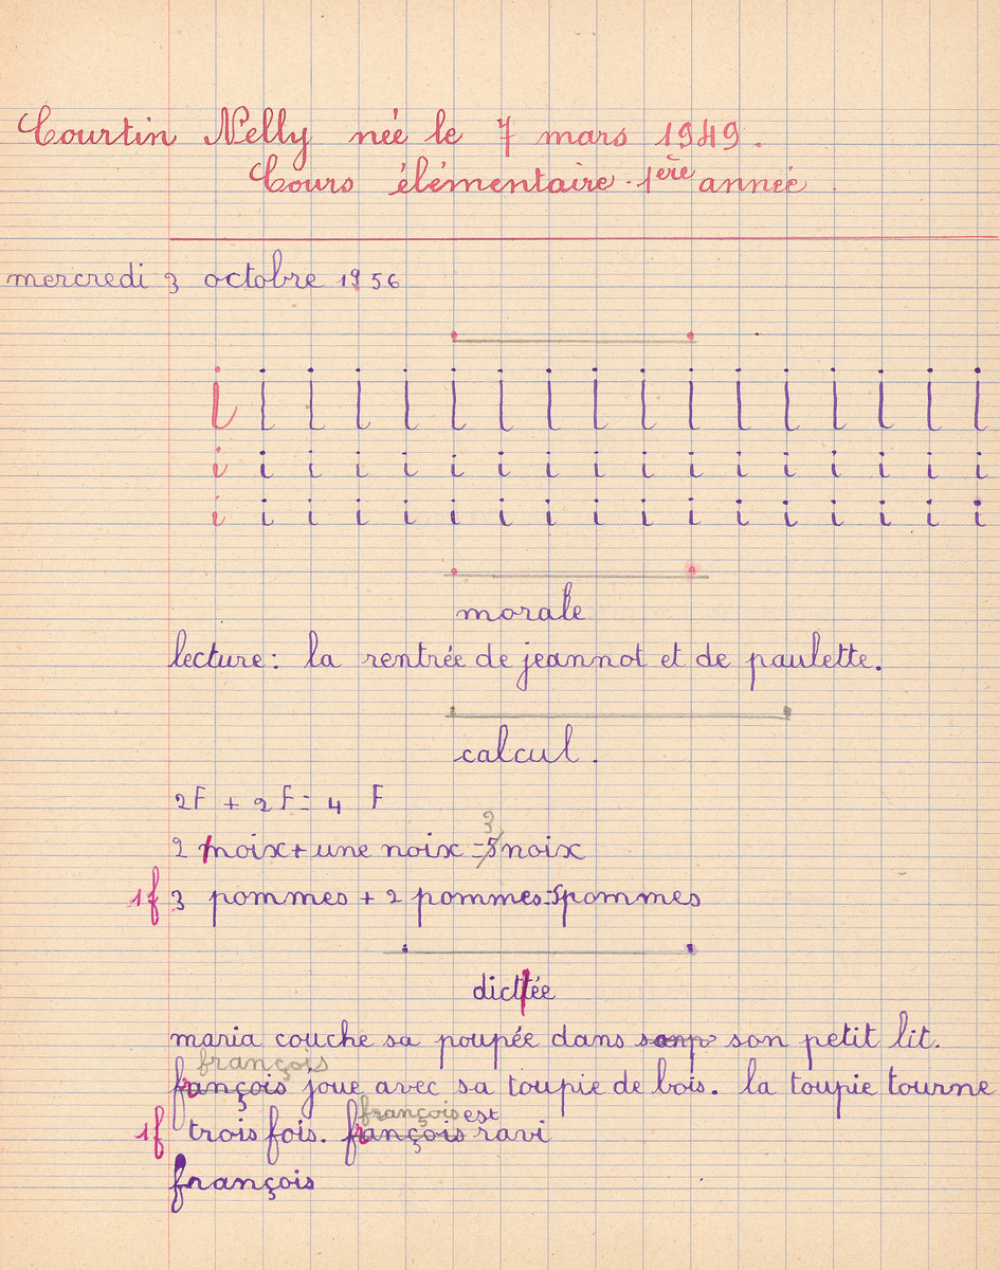 Courtin Nelly née le 7 mars 1949.
Cours élémentaire. 1ère année.
mercredi 3 octobre 1956
i i i i i i i i i i i i i i i i i
i i i i i i i i i i i i i i i i i
i i i i i i i i i i i i i i i i i
morale
lecture: la rentrée de jeannot et de paulette.
calcul.
2F + 2F = 4 F
3
2 noix + une noix = 5 noix
1f 3 pommes + 2 pommes = 5 pommes
dicttée
maria couche sa poupée dans sonp son petit lit.
françois
françois joue avec sa toupie de bois. la toupie tourne
françois est
1f trois fois. françois ravi
françois